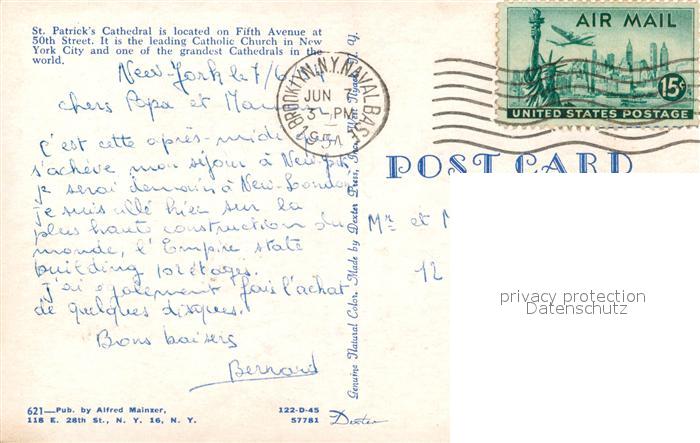 St. Patrick's Cathedral is located on Fifth Avenue at
50th Street. It is the leading Catholic Church in New
York City and one of the grandest Cathedrals in the
world.
New-York le 7/6
chers Papa et Maman
c'est cette après-midi que
s'achève mon séjour à New-York
je serai demain à New-London
je suis allé hier sur la
plus haute construction du
monde, l'Empire state
building 102 étages.
j'ai également fais l'achat
de quelques disques.
Bons baisers
Bernard
621—Pub. by Alfred Mainzer,
118 E. 28th St., N. Y. 16, N. Y.
122-D-45
57781
Dexter
Genuine Natural Color. Made by Dexter Press, Inc. West Nyack, N. Y.
BROOKLYN, N.Y. NAVAL BASE
JUN 7
3 - PM
AIR MAIL
15¢
UNITED STATES POSTAGE
POST CARD
Mr et M
12
privacy protection
Datenschutz